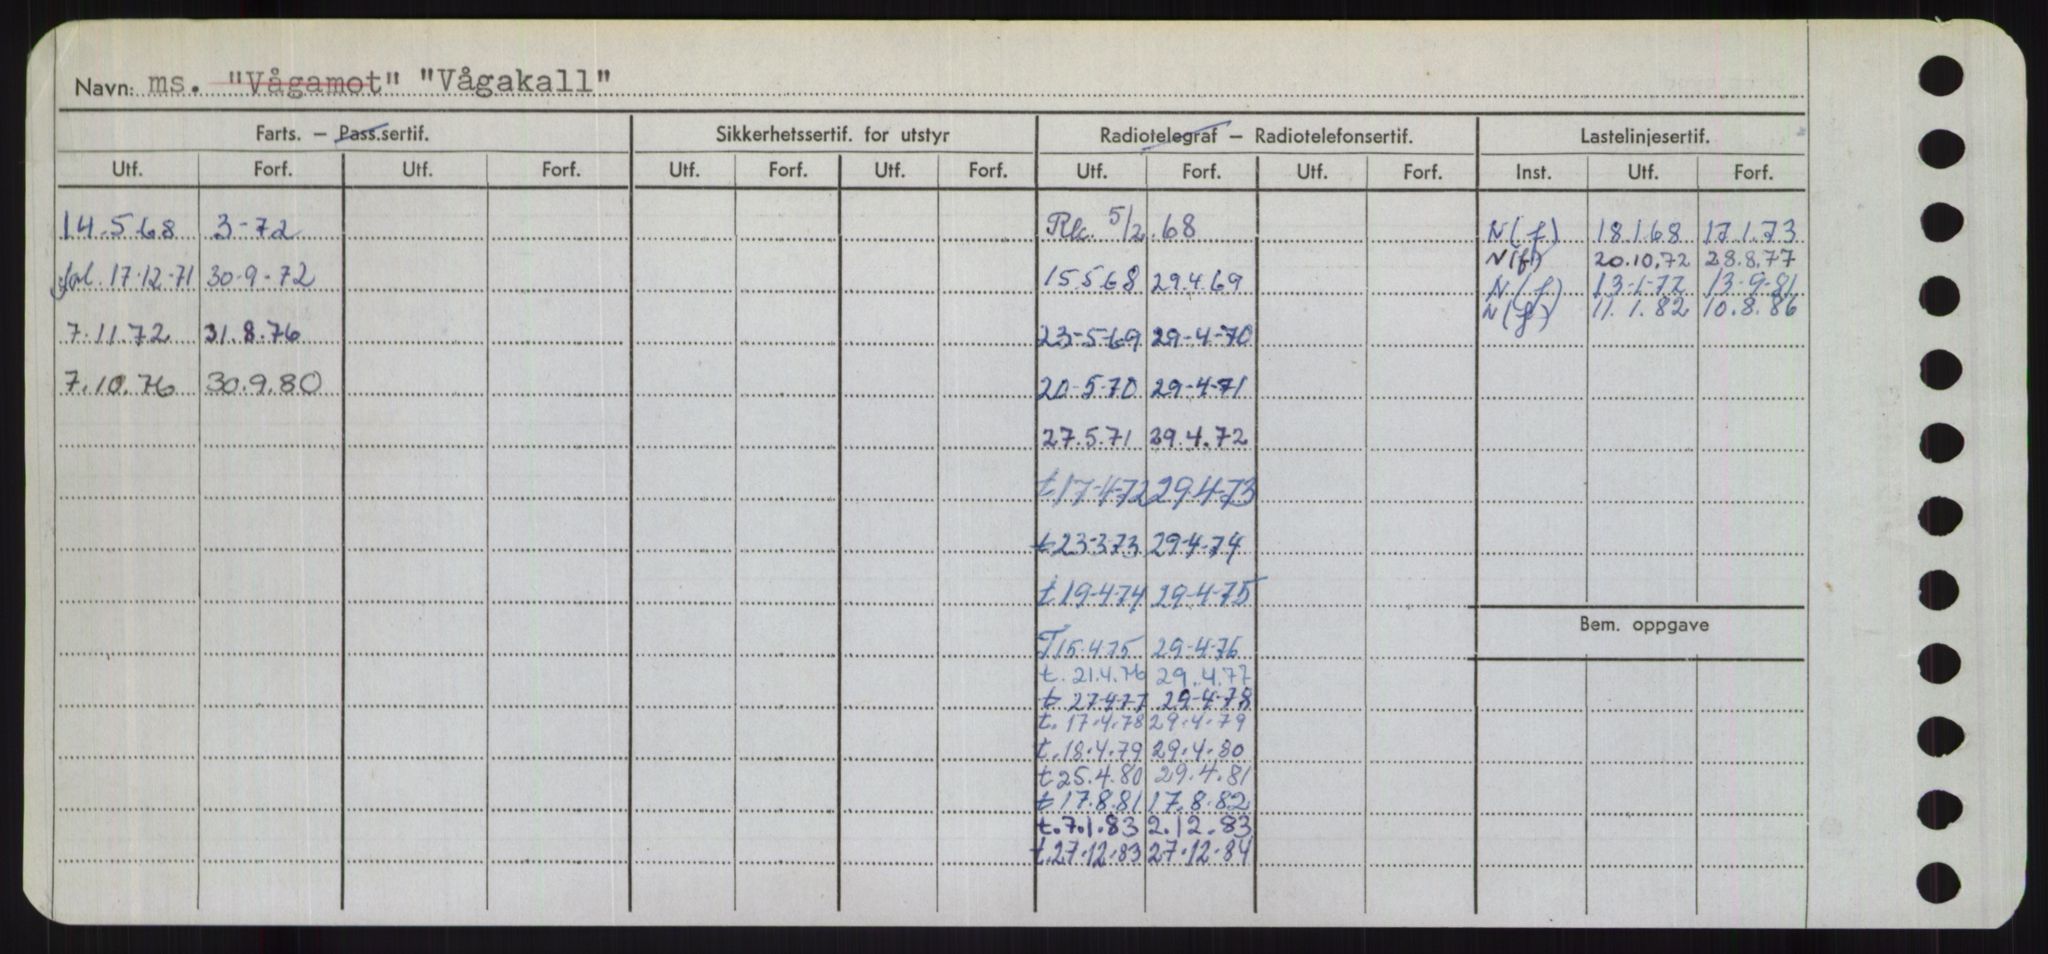 Navn: ms. "Vågamot" "Vågakall"
Farts. — Pass.sertif. Sikkerhetssertif. for utstyr Radiotelegraf — Radiotelefonsertif. Lastelinjesertif.
Utf. Forf. Utf. Forf. Utf. Forf. Utf. Forf. Utf. Forf. Utf. Forf. Inst. Utf. Forf.
14.5.68 3-72 5/2.68 N(f) 18.1.68 17.1.73
N(f) 20.10.72 28.8.77
17.12.71 30.9-72 15.5.68 29.4.69 N(f) 13-9-81
N(f) 11.1.82 10.8.86
7.11.72 31.8.76 23-5-69 29-4-70
7.10.76 30.9.80 20-5-70 29-4-71
27.5.71 29.4.72
t 17-4-72 29.4-73
t 23-3-73 29-4-74
t 19-4-74 29-4-75
Bem. oppgave
T 15.4.75 29-4-76
t. 21.4.76 29.4.77
t 27.4.77 29-4-78
t. 17.4.78 29.4.79
t. 18.4.79 29.4.80
t 25.4.80 29.4.81
t 17.8.81 17.8.82
t. 7.1.83 2.12.83
t. 27.12.83 27.12.84